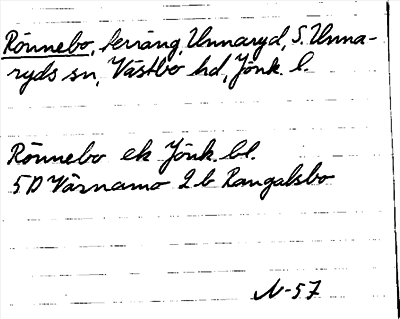 Rönnebo, terräng, Unnaryd, S. Unna-
ryds sn, Västbo hd, Jönk. l.
Rönnebo ek Jönk. bl.
5D Värnamo 2b Rangelsbo
N-57